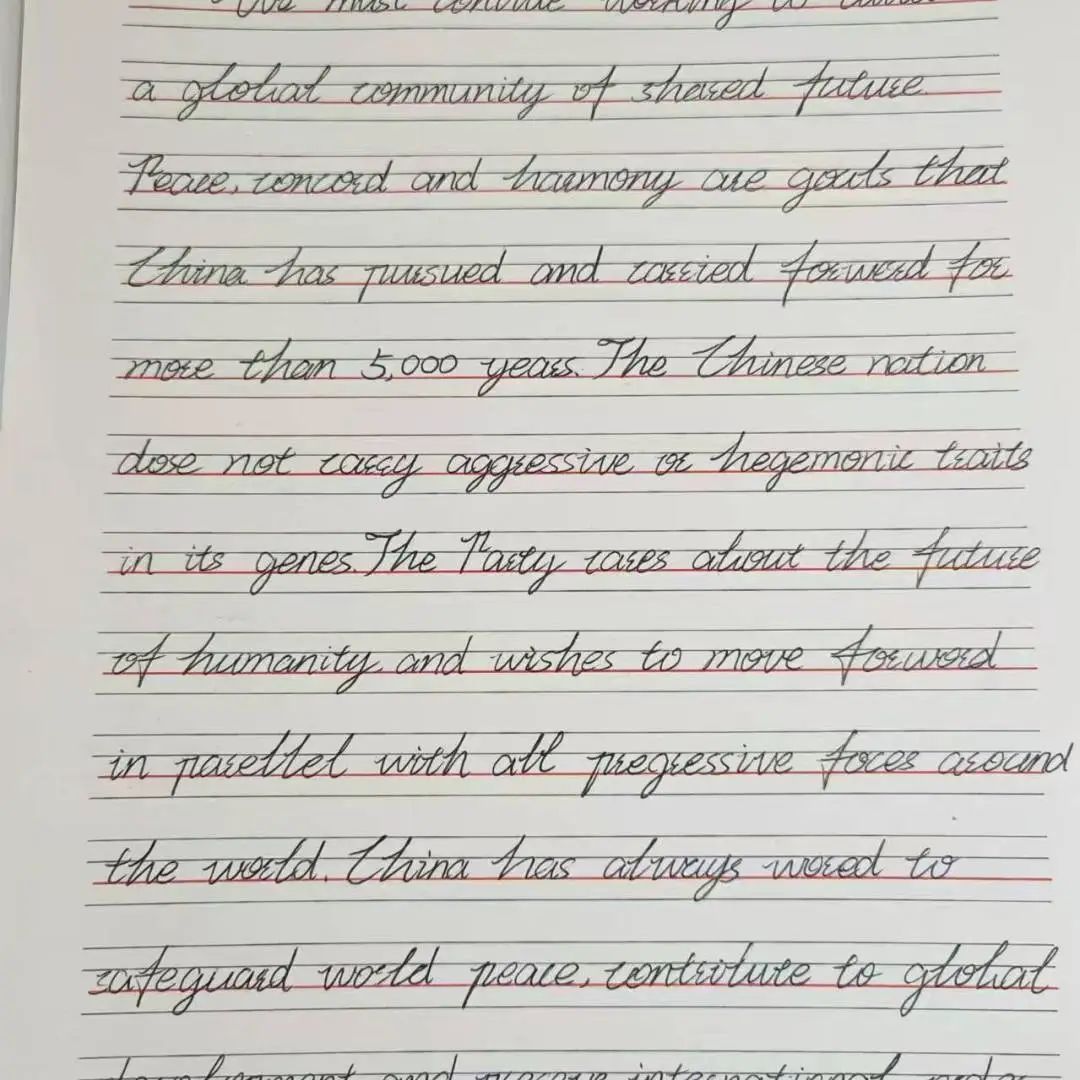 We must continue working to
a global community of shared future.
Peace, concord and harmony are goals that
China has pursued and carried forward for
more than 5,000 years. The Chinese nation
dose not carry aggressive or hegemonic traits
in its genes. The Party cares about the future
of humanity, and wishes to move forword
in parellel with all pregressive forces around
the world. China has always wored to
safeguard world peace, contribute to global
development and preserve international order